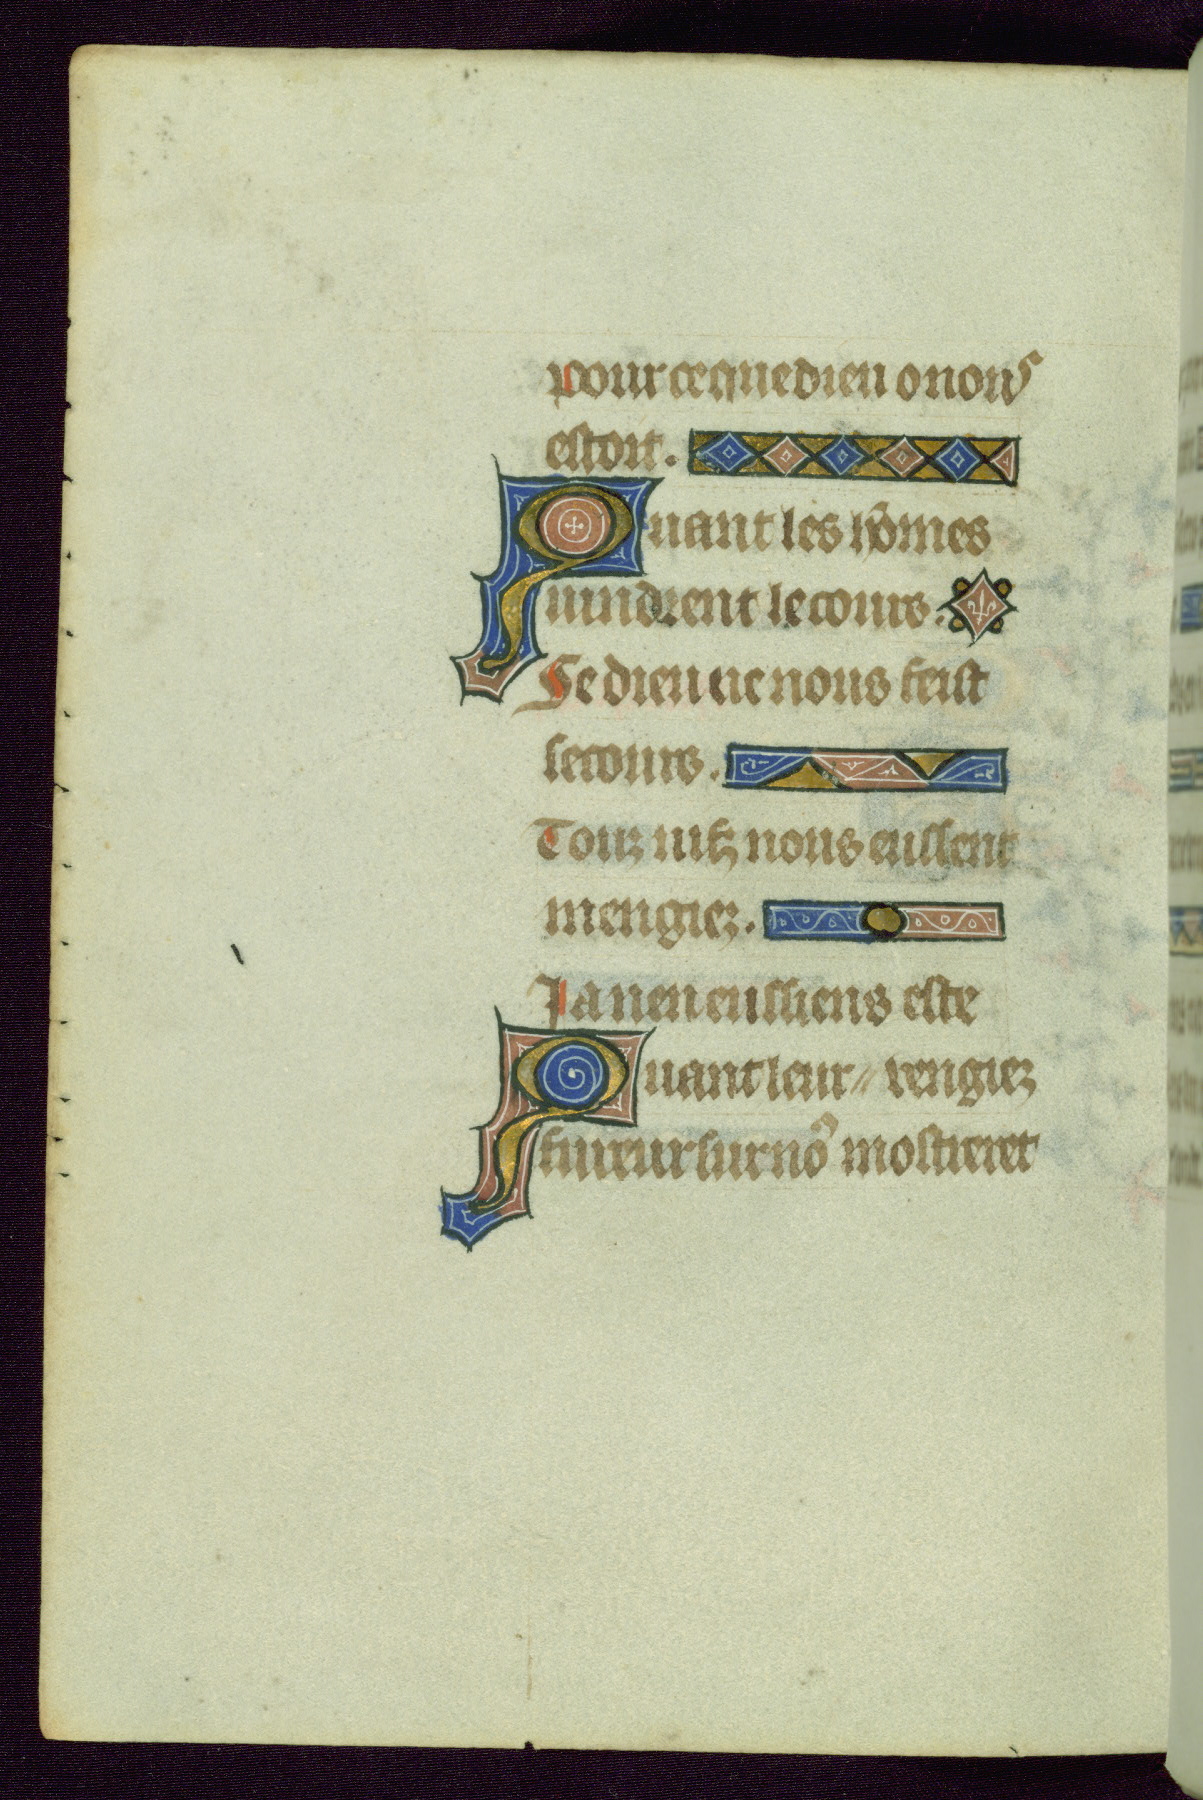 pour ce que dieu o nous
estoit.
Quant les hōmes
uindrent le cours.
Se dieu ne nous feist
secours.
Touz uifz nous eussent
mengiez.
Ja nen eussiens este
Quant leur // vengiez
fureur sur nō mostrerēt